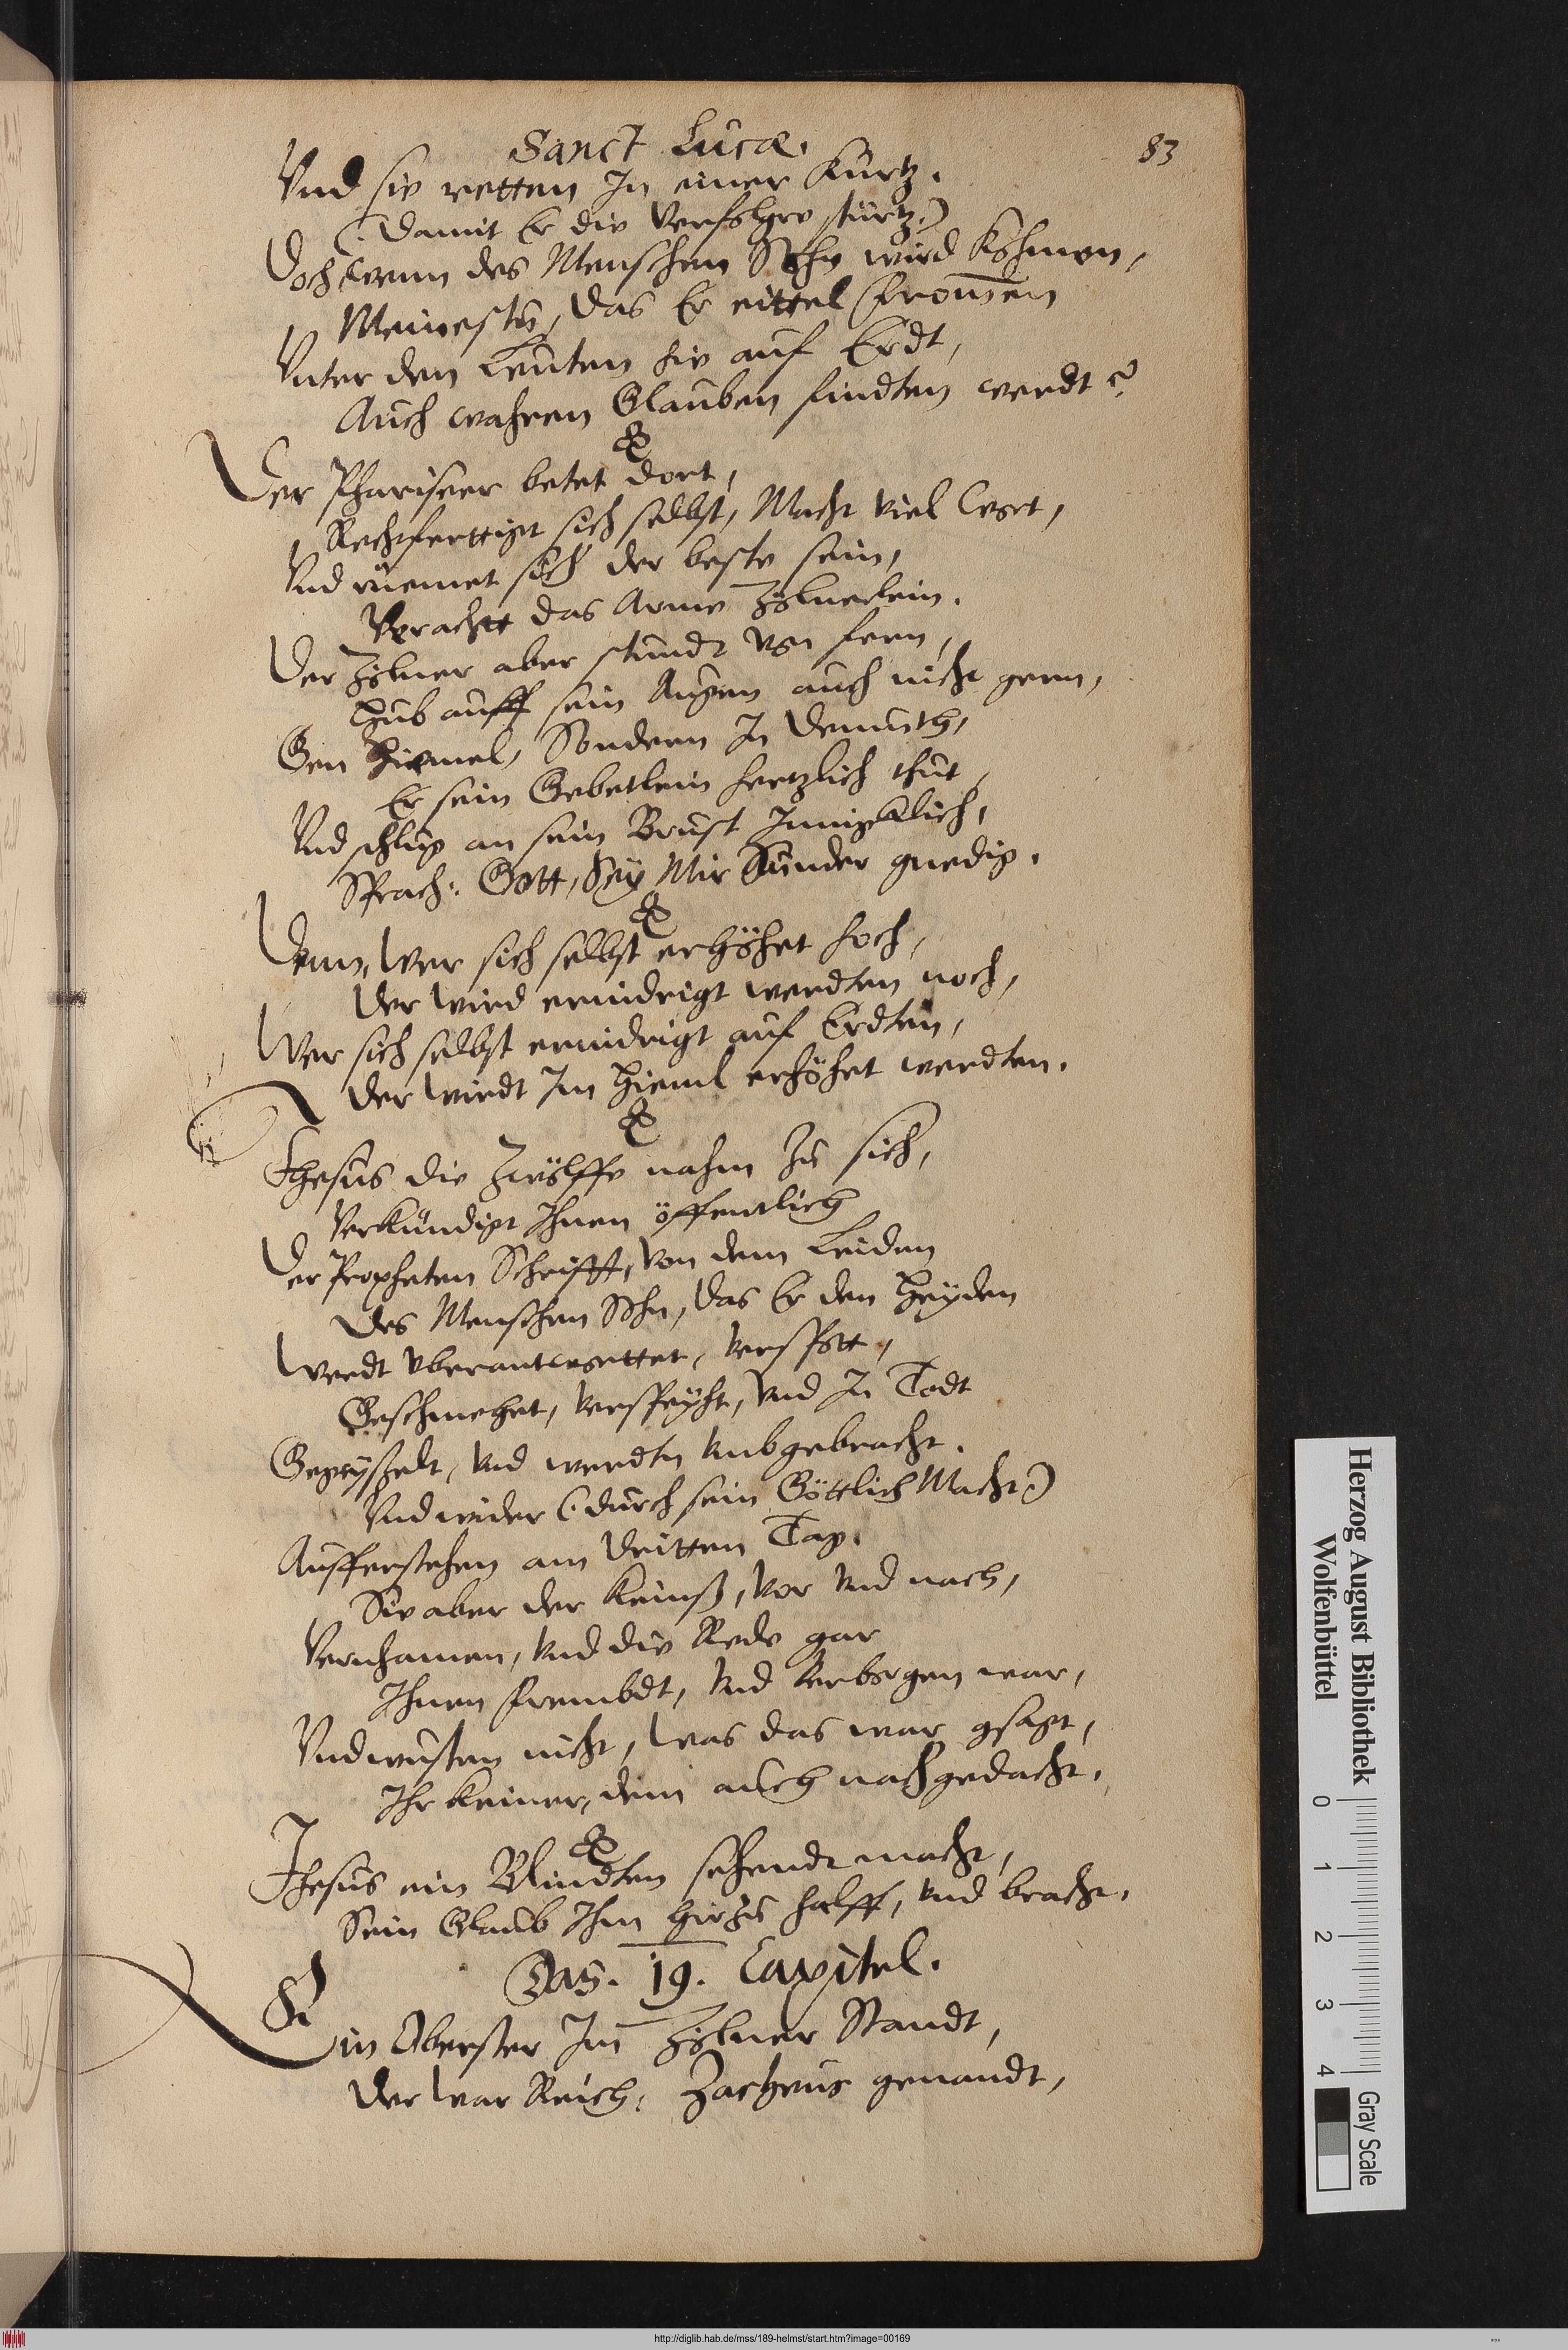 Sanct Lucæ.
83
Vnd sie retten In einer Kurtz.
(: Damit Er die Verfolger stürtz:)
Doch wenn des Menschen Sohn wird Kohmen,
Meinestu, das Er eittel frommen
Vnter den Leuten hie auf Erdt,
Auch wahren Glauben findten werdt?
Der Phariseer betet dort,
Rechtfertiget sich selbst, Macht viel wort,
Vnd rüemet sich der beste sein,
Veracht das Arme Zölnerlein.
Der Zölner aber stundt von fern,
Hub auff sein Augen auch nicht gern,
Gen Himel, Sondern In Demuth,
Er sein Gebetlein hertzlich thut,
Vnd schlug an sein Brust Innigklich,
Sprach: Gott, Sey Mir Sünder gnedig.
Denn, Wer sich selbst erhöhet hoch,
Der wird ernidrigt werdten noch,
Wer sich selbst ernidrigt auf Erdten,
Der wirdt Im Himel erhöhet werdten.
Jhesus die Zwölffe nahm Zu sich,
Verkündigt Ihnen öffentlich
Der Propheten Schrifft, von dem Leiden
Des Menschen Sohn, das Er den Heyden
Werdt vberantworttet, verspott,
Geschmehet, verspeyht, vnd In Todt
Gegeysselt, vnd werdtn vmbgebracht.
Vnd wider (: durch sein Göttlich Macht:)
Aufferstehen am Dritten Tag.
Sie aber der Keinß, vor vnd nach,
Vernhamen, vnd die Rede gar
Ihnen frembdt, vnd verborgen war,
Vnd wusten nicht, was das war gsagt,
Ihr Keiner, dem auch nachgedacht.
Jhesus ein Blindten sehendt macht,
Sein Glaub Ihm hirzu halff, vnd bracht.
Das. 19. Capitel.
Ein Oberster Im Zölner Standt,
Der war Reich, Zacheus genandt,
Herzog August Bibliothek
Wolfenbüttel
0 1 2 3 4
Gray Scale
http://diglib.hab.de/mss/189-helmst/start.htm?image=00169